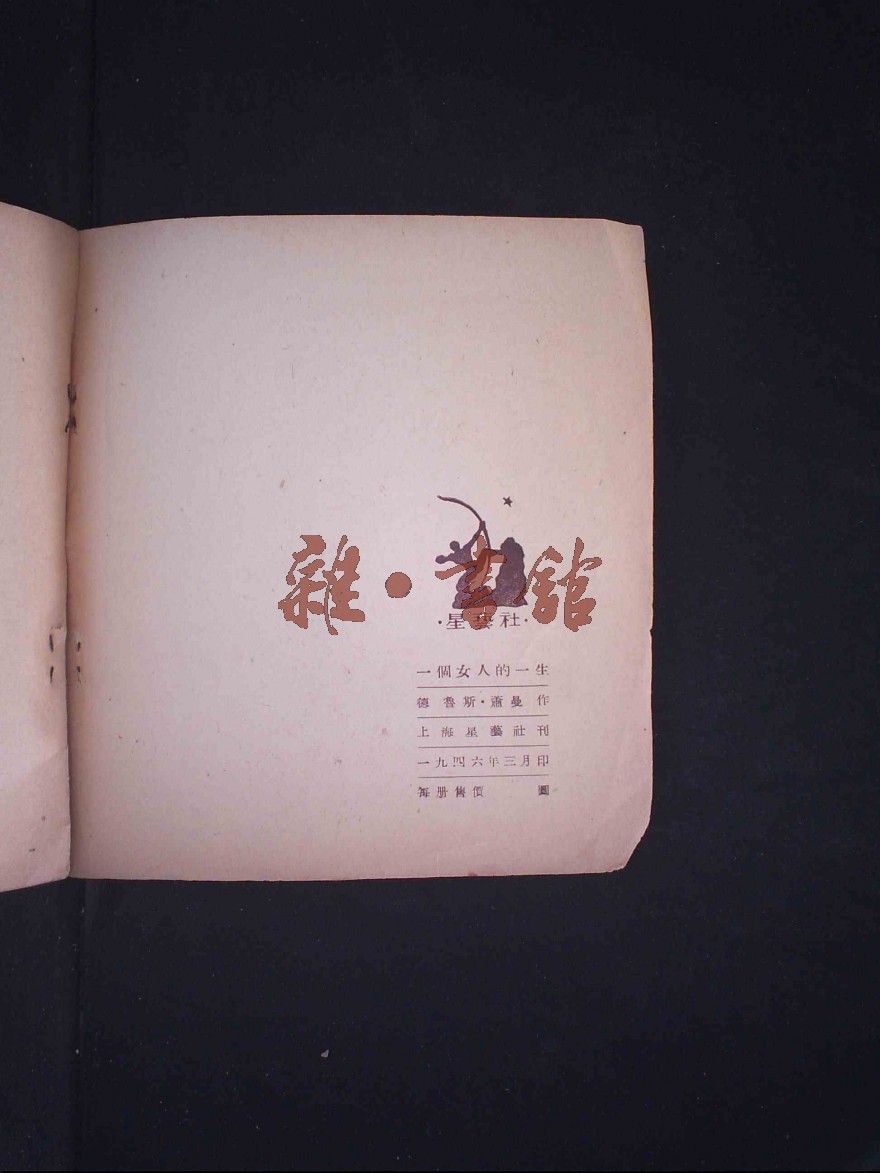 雜·書館
·星藝社·
一個女人的一生
德魯斯·蕭曼 作
上海星藝社刊
一九四六年三月印
每册售價 圓